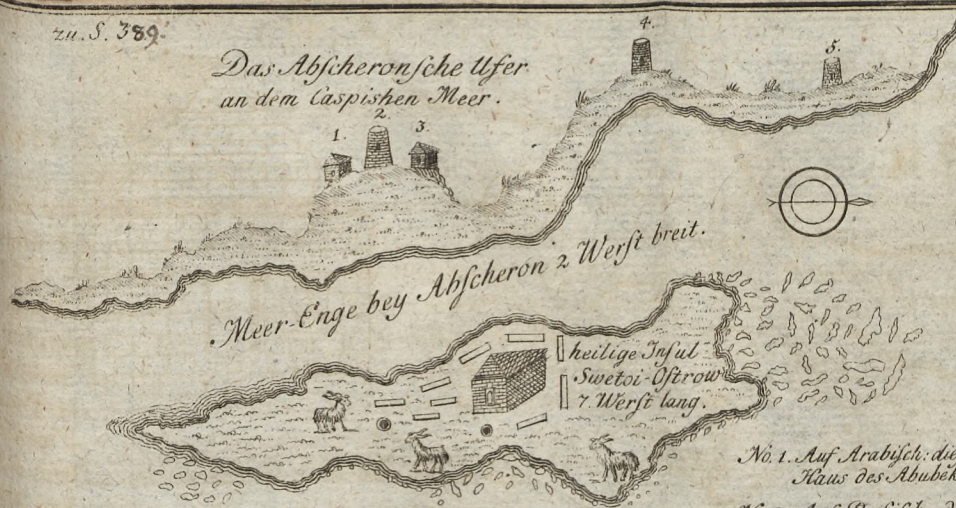 zu. S. 389.
Das Abſcheronſche Ufer
an dem Caspiſhen Meer.
1.
2.
3.
4.
5.
Meer-Enge bey Abſcheron 2 Werſt breit.
heilige Inſul
Swetoi-Oſtrow
7. Werſt lang.
No. 1. Auf Arabiſch: die
Haus des Abubek